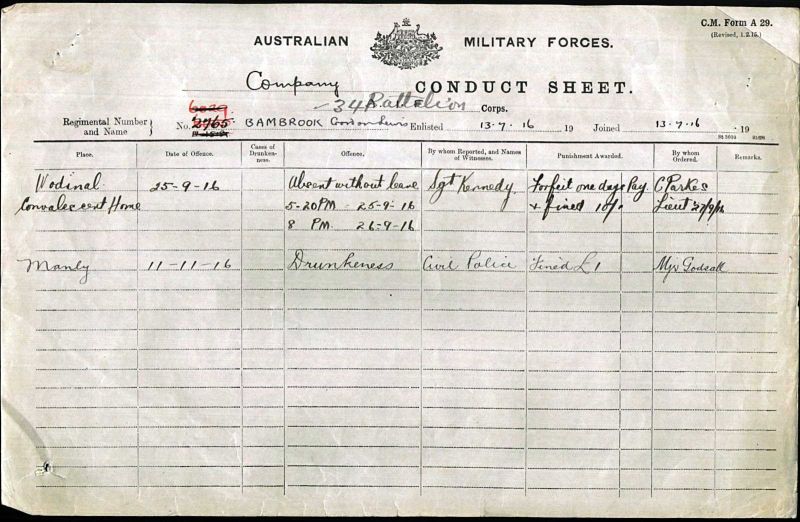 C.M. Form A 29.
(Revised, 1.2.15.)
AUSTRALIAN MILITARY FORCES.
Company CONDUCT SHEET.
34 Battalion Corps.
Regimental Number and Name } No. 2765 BAMBROOK Gordon Lewis Enlisted 13-7-16 19 Joined 13-7-16 19
Place. Date of Offence. Cases of Drunkenness. Offence. By whom Reported, and Names of Witnesses. Punishment Awarded. By whom Ordered. Remarks.
Wodinal 25-9-16 Absent without leave Sgt Kennedy Forfeit one days Pay C Parkes
Convalescent Home 5-20 PM 25-9-16 + fined 10/- Lieut 27/9/16
8 PM 26-9-16
Manly 11-11-16 Drunkeness Civil Police Fined £1 Mjr Godsall